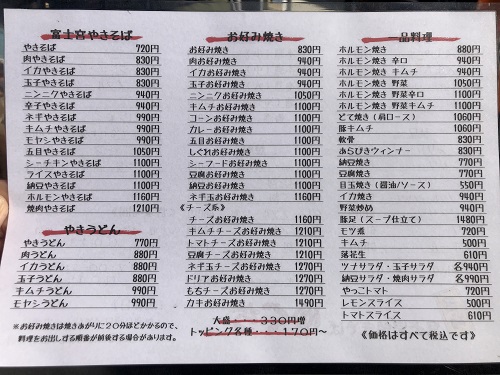 富士宮やきそば
やきそば 720円
肉やきそば 830円
イカやきそば 830円
玉子やきそば 830円
ニンニクやきそば 940円
辛子やきそば 940円
ネギやきそば 940円
キムチやきそば 990円
モヤシやきそば 990円
五目やきそば 1050円
シーチキンやきそば 1100円
ライスやきそば 1100円
納豆やきそば 1100円
ホルモンやきそば 1160円
焼肉やきそば 1210円
やきうどん
やきうどん 770円
肉うどん 880円
イカうどん 880円
玉子うどん 880円
キムチうどん 990円
モヤシうどん 990円
※お好み焼きは焼きあがりに20分ほどかかるので、
料理をお出しする順番が前後する場合があります。
お好み焼き
お好み焼き 830円
肉お好み焼き 940円
イカお好み焼き 940円
玉子お好み焼き 940円
ニンニクお好み焼き 1050円
キムチお好み焼き 1100円
コーンお好み焼き 1100円
カレーお好み焼き 1100円
五目お好み焼き 1100円
しぐれお好み焼き 1100円
シーフードお好み焼き 1100円
豆腐お好み焼き 1100円
納豆お好み焼き 1100円
ネギ玉お好み焼き 1160円
<チーズ系>
チーズお好み焼き 1160円
キムチチーズお好み焼き 1210円
トマトチーズお好み焼き 1210円
豆腐チーズお好み焼き 1210円
ネギ玉チーズお好み焼き 1210円
ドリアお好み焼き 1210円
もちチーズお好み焼き 1210円
カキお好み焼き 1490円
大盛・・・330円増
トッピング各種・・・170円~
一品料理
ホルモン焼き 880円
ホルモン焼き 辛口 940円
ホルモン焼き キムチ 940円
ホルモン焼き 野菜 1050円
ホルモン焼き 野菜辛口 1100円
ホルモン焼き 野菜キムチ 1100円
とて焼き(肩ロース) 1060円
豚キムチ 1060円
軟骨 830円
あらびきウィンナー 830円
納豆焼き 770円
豆腐焼き 770円
目玉焼き(醤油/ソース) 550円
イカ焼き 940円
野菜炒め 940円
豚足(スープ仕立て) 1480円
モツ煮 770円
キムチ 500円
落花生 610円
ツナサラダ・玉子サラダ 各940円
納豆サラダ・焼肉サラダ 各990円
やっこトマト 770円
レモンスライス 500円
トマトスライス 610円
《価格はすべて税込です》